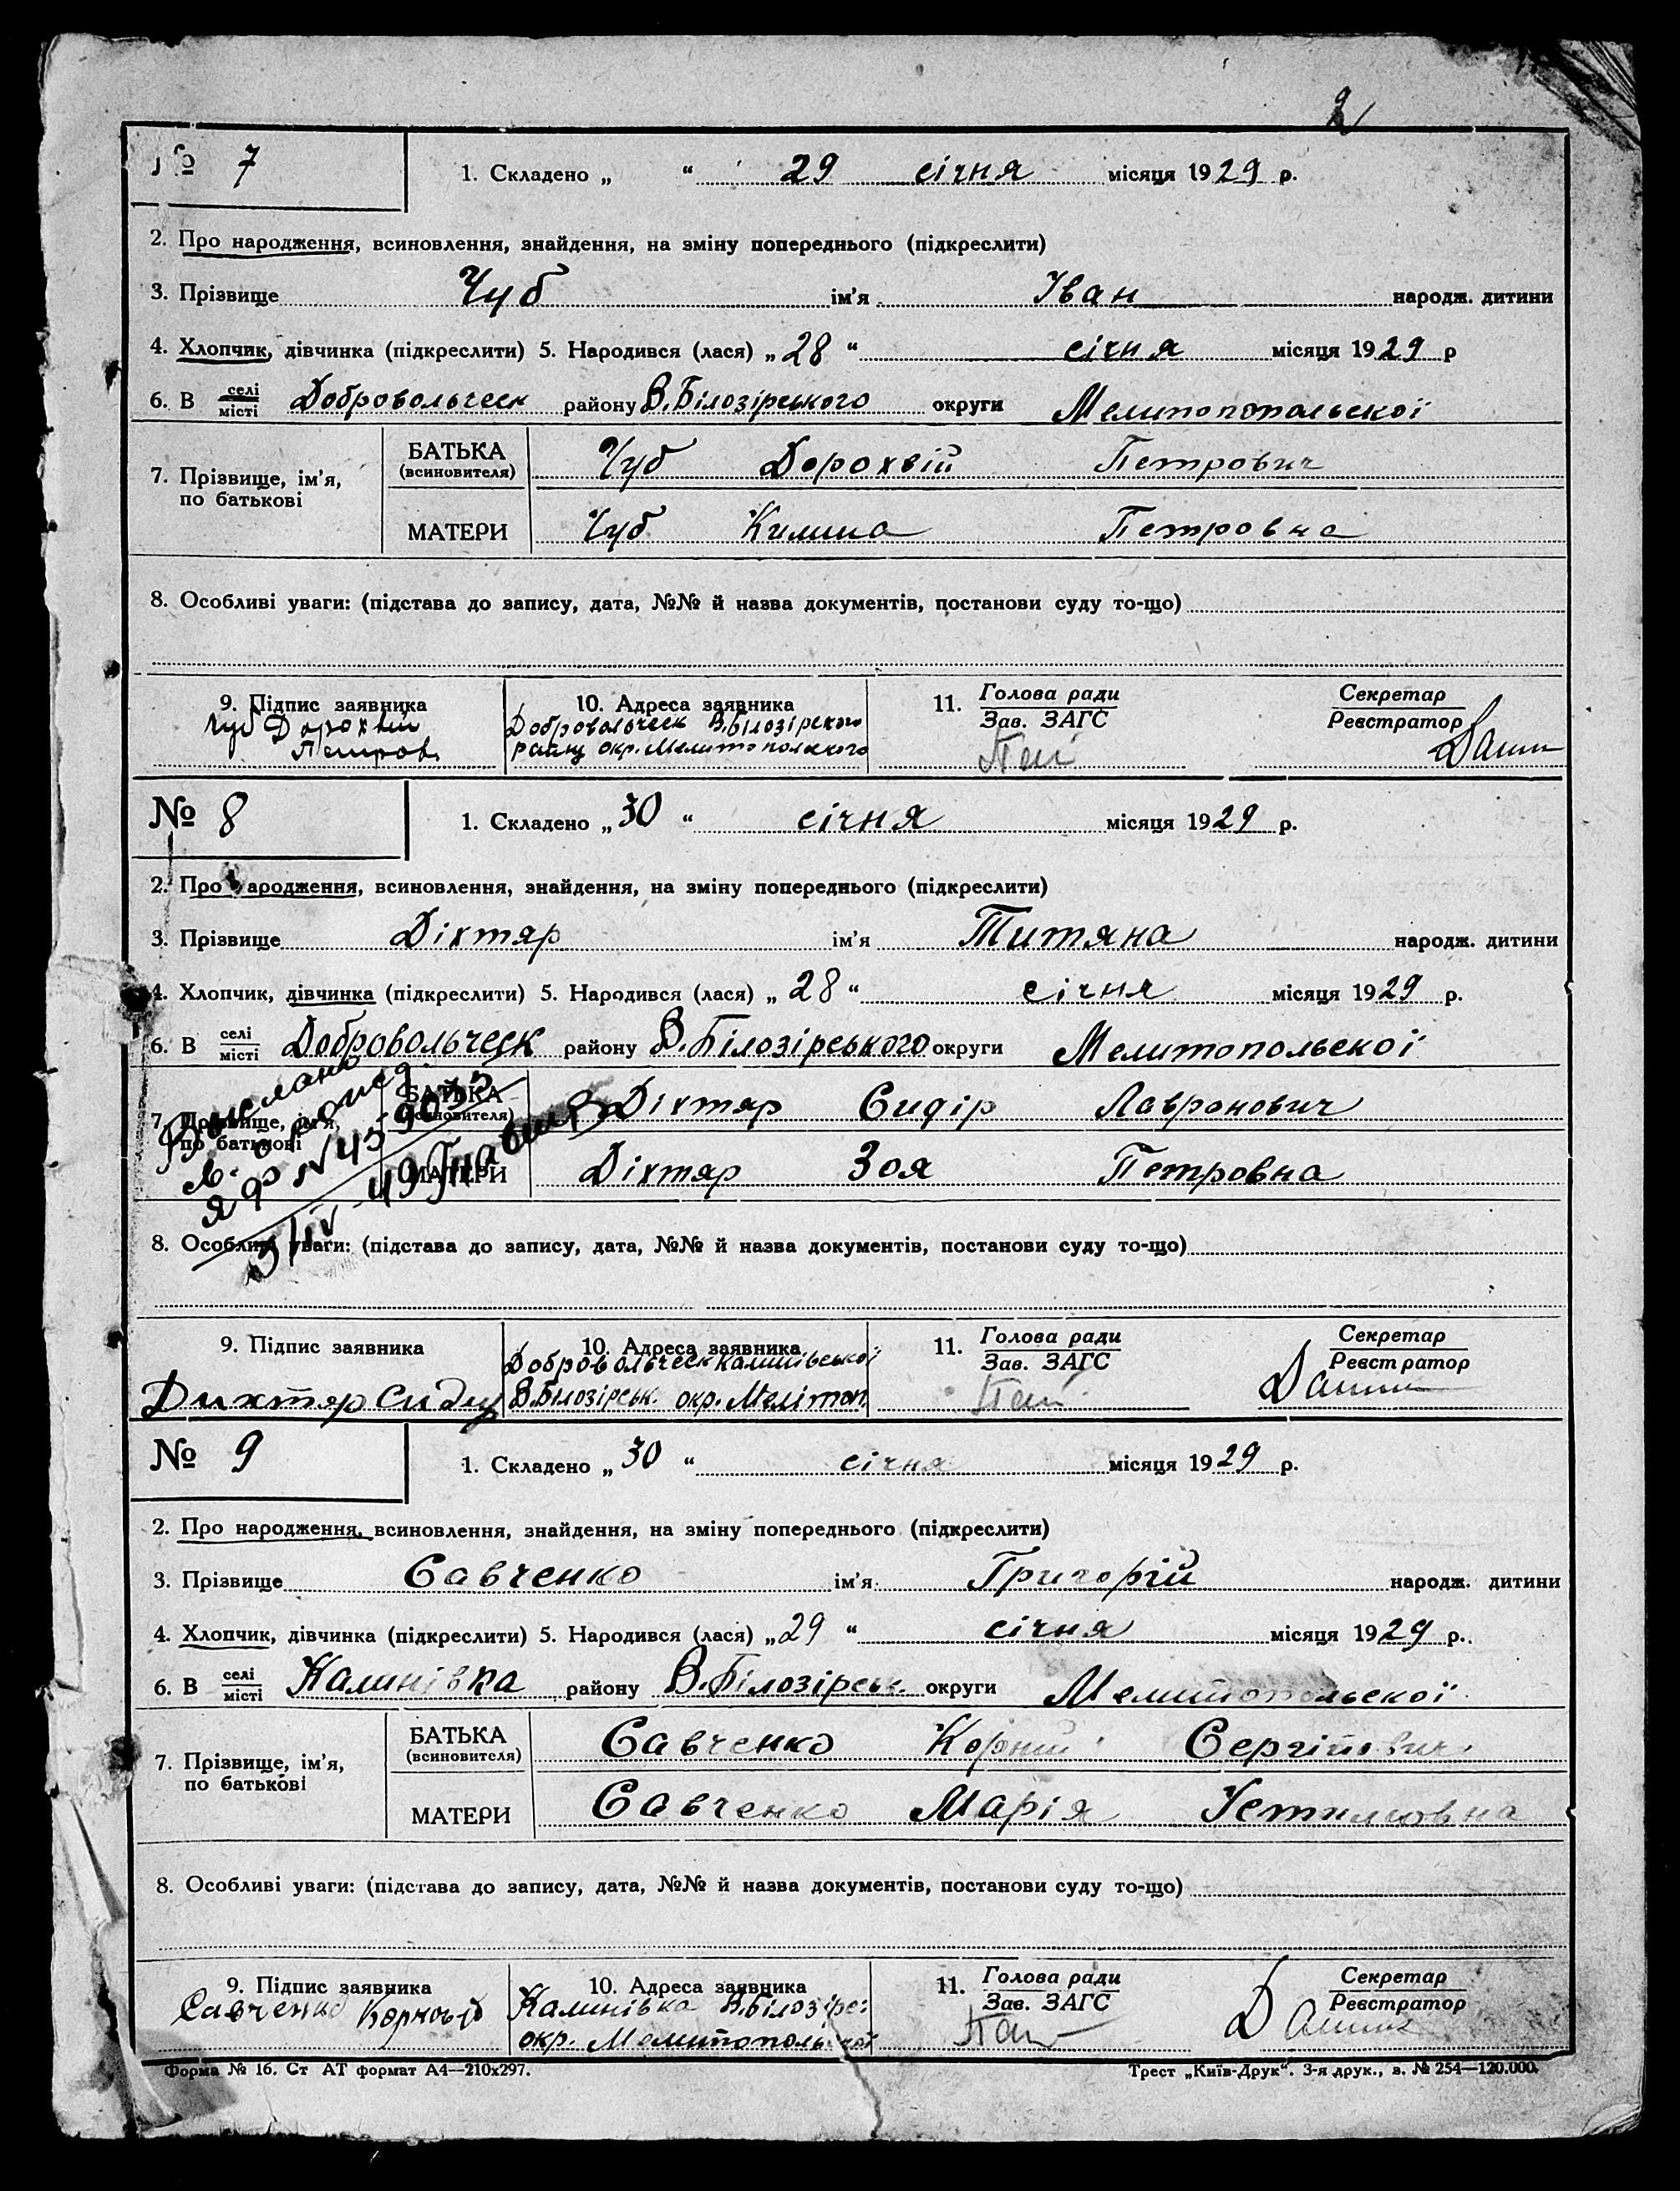 2
№ 7
1. Складено „ “ 29 січня місяця 1929 р.
2. Про народження, всиновлення, знайдення, на зміну попереднього (підкреслити)
3. Прізвище Чуб ім'я Іван народж. дитини
4. Хлопчик, дівчинка (підкреслити) 5. Народився (лася) „ 28 “ січня місяця 1929 р
6. В селі місті Добровольческ району В.Білозірського округи Мелитопопольскої
7. Прізвище, ім'я, по батькові
БАТЬКА (всиновителя) Чуб Дорохвій Петрович
МАТЕРИ Чуб Килина Петровна
8. Особливі уваги: (підстава до запису, дата, №№ й назва документів, постанови суду то-що)
9. Підпис заявника
Чуб Дорохвій
Петров
10. Адреса заявника
Добровольческ В.Білозірского
райщ окр. Мелитопольского
11. Голова ради
Зав. ЗАГС
Секретар
Реєстратор
№ 8
1. Складено „ 30 “ січня місяця 1929 р.
2. Про ародження, всиновлення, знайдення, на зміну попереднього (підкреслити)
3. Прізвище Діхтяр ім'я Титяна народж. дитини
4. Хлопчик, дівчинка (підкреслити) 5. Народився (лася) „ 28 “ січня місяця 1929 р.
6. В селі місті Добровольческ району В.Білозірського округи Мелитопольскої
7. Прізвище, ім'я, по батькові
БАТЬКА (всиновителя) Діхтяр Сидір Лавронович
МАТЕРИ Діхтяр Зоя Петровна
8. Особливі уваги: (підстава до запису, дата, №№ й назва документів, постанови суду то-що)
9. Підпис заявника
Дихтяр Сидур
10. Адреса заявника
Добровольческ Калинівської
В.Білозірськ. окр. Мелітоп.
11. Голова ради
Зав. ЗАГС
Секретар
Реєстратор
№ 9
1. Складено „ 30 “ січня місяця 1929 р.
2. Про народження, всиновлення, знайдення, на зміну попереднього (підкреслити)
3. Прізвище Савченко ім'я Григорій народж. дитини
4. Хлопчик, дівчинка (підкреслити) 5. Народився (лася) „ 29 “ січня місяця 1929 р.
6. В селі місті Калинівка району В.Білозірськ. округи Мелитопольскої
7. Прізвище, ім'я, по батькові
БАТЬКА (всиновителя) Савченко Корній Сергійович
МАТЕРИ Савченко Марія
8. Особливі уваги: (підстава до запису, дата, №№ й назва документів, постанови суду то-що)
9. Підпис заявника
Савченко
10. Адреса заявника
Калинівка
окр. Мелитопольской
11. Голова ради
Зав. ЗАГС
Секретар
Реєстратор
Форма № 16. Ст АТ формат А4—210х297.
Трест „Київ-Друк“. 3-я друк., з. № 254—120.000.